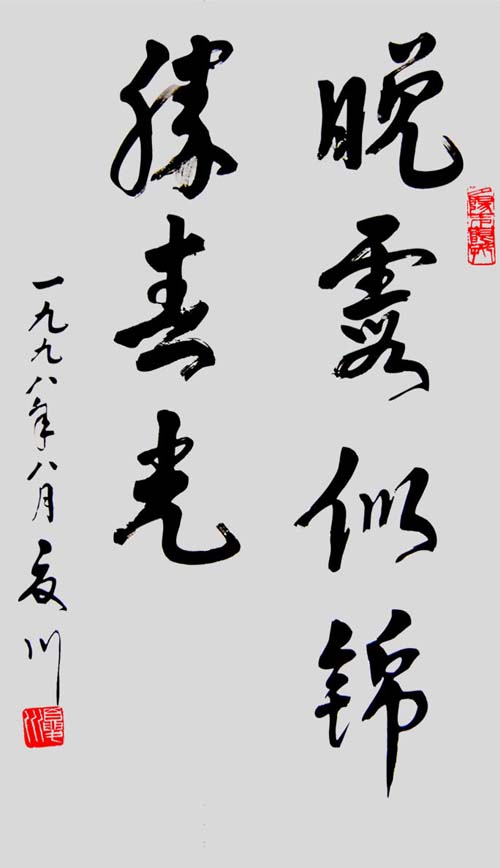 晚霞似錦
勝春光
一九九八年八月夏川